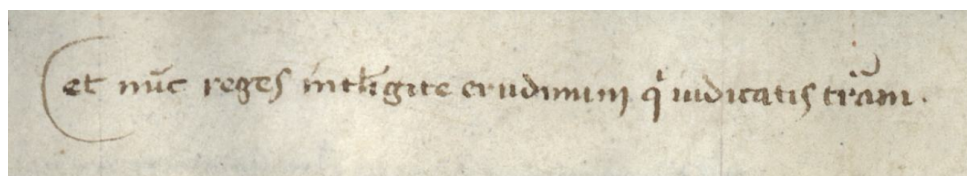 et nūc reges intłigite erudimini qͥ iudicatis trā̃m.